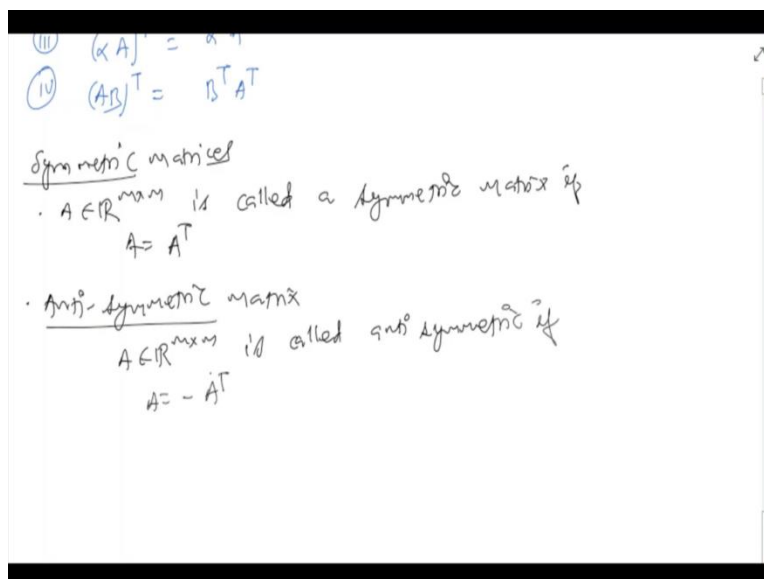 (iii) (αA)ᵀ = α Aᵀ
(iv) (AB)ᵀ = Bᵀ Aᵀ
Symmetric matrices
· A ∈ ℝᵐˣᵐ is called a symmetric matrix if
A = Aᵀ
· Anti-symmetric matrix
A ∈ ℝᵐˣᵐ is called anti symmetric if
A = - Aᵀ